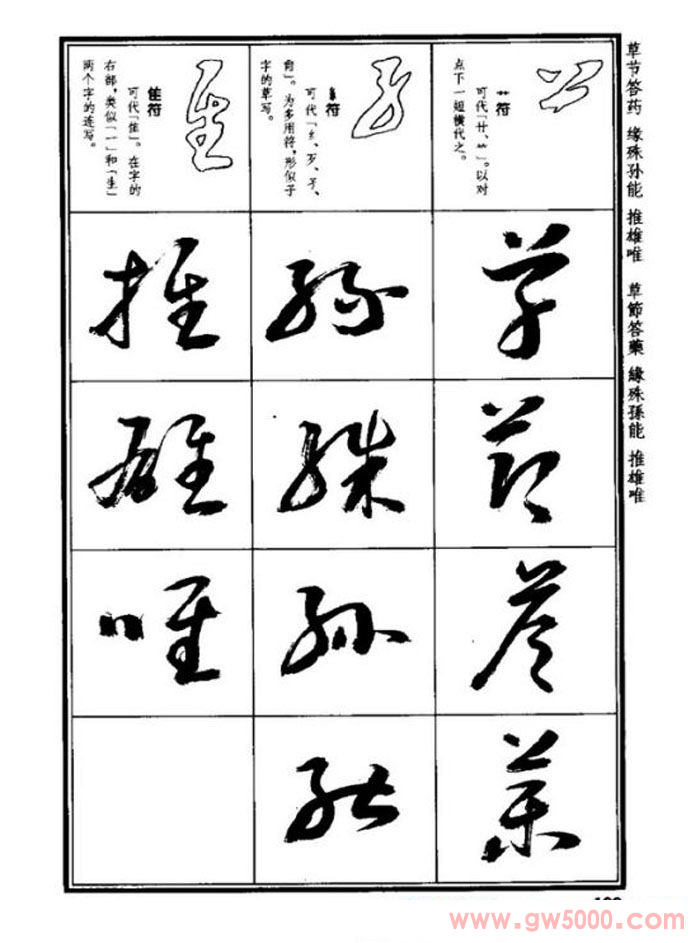 草节答药 缘殊孙能 推雄唯 草節答藥 緣殊孫能 推雄唯
艹符
可代「廾、⺮」。以对
点下一短横代之。
符
可代「纟、歹、孑、
」。为多用符,形似子
字的草写。
隹符
可代「隹」。在字的
右部,类似「一」和「生」
两个字的连写。
草
节
答
药
缘
殊
孙
能
推
雄
唯
www.gw5000.com